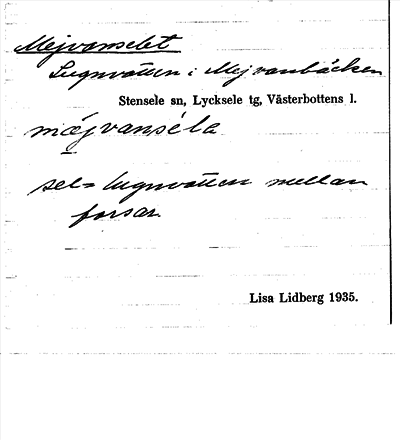 Mejvanselet
Lugnvatten i Mejvanbäcken
Stensele sn, Lycksele tg, Västerbottens l.
mäjvanséla
sel = lugnvatten mellan
forsar.
Lisa Lidberg 1935.